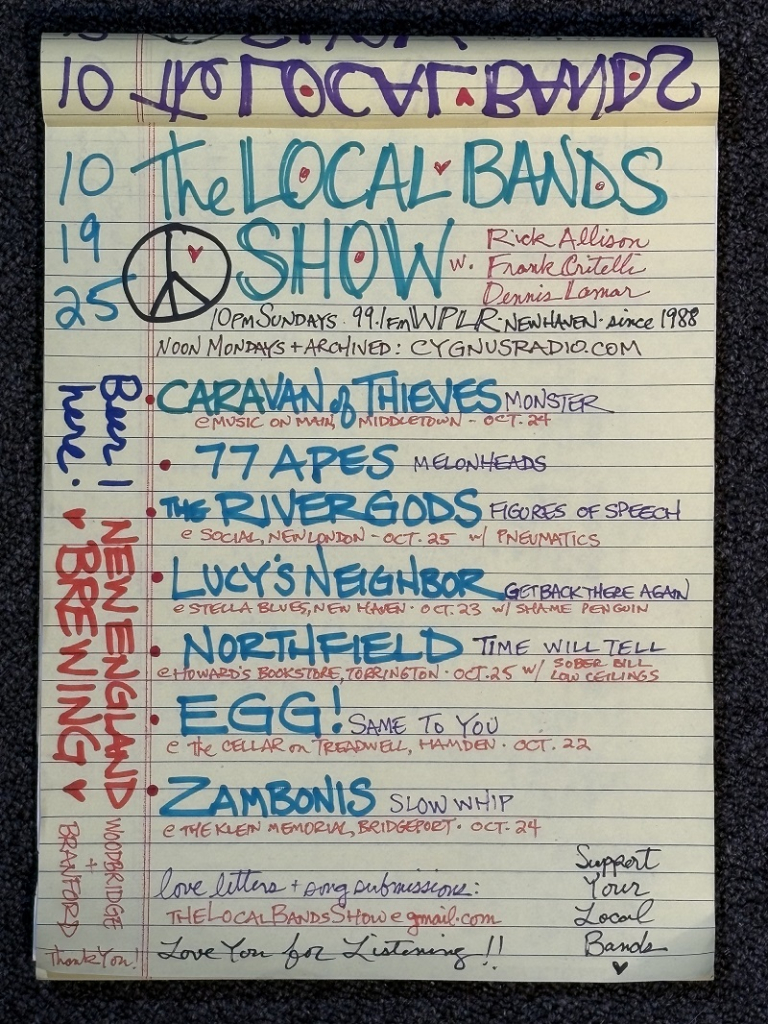 10 The LOCAL BANDS
10 The LOCAL BANDS
19 SHOW w. Rick Allison
Frank Critelli
25 Dennis Lamar
10PM SUNDAYS · 99.1FM WPLR · NEW HAVEN · since 1988
NOON MONDAYS + ARCHIVED: CYGNUSRADIO.COM
• CARAVAN of THIEVES MONSTER
@ MUSIC ON MAIN, MIDDLETOWN - OCT. 24
• 77 APES MELONHEADS
• THE RIVERGODS FIGURES OF SPEECH
@ SOCIAL, NEW LONDON - OCT. 25 w/ PNEUMATICS
• LUCY'S NEIGHBOR GET BACK THERE AGAIN
@ STELLA BLUES, NEW HAVEN · OCT. 23 w/ SHAME PENGUIN
• NORTHFIELD TIME WILL TELL
@ HOWARD'S BOOKSTORE, TORRINGTON · OCT. 25 w/ SOBER BILL
LOW CEILINGS
• EGG! SAME TO YOU
@ the CELLAR on TREADWELL, HAMDEN · OCT. 22
• ZAMBONIS SLOW WHIP
@ THE KLEIN MEMORIAL, BRIDGEPORT · OCT. 24
love letters + song submissions:
THELOCALBANDSSHOW@gmail.com
Love You for Listening!!
Support
Your
Local
Bands
Beer!
here:
NEW ENGLAND
BREWING
WOODBRIDGE
+
BRANFORD
Thank You!